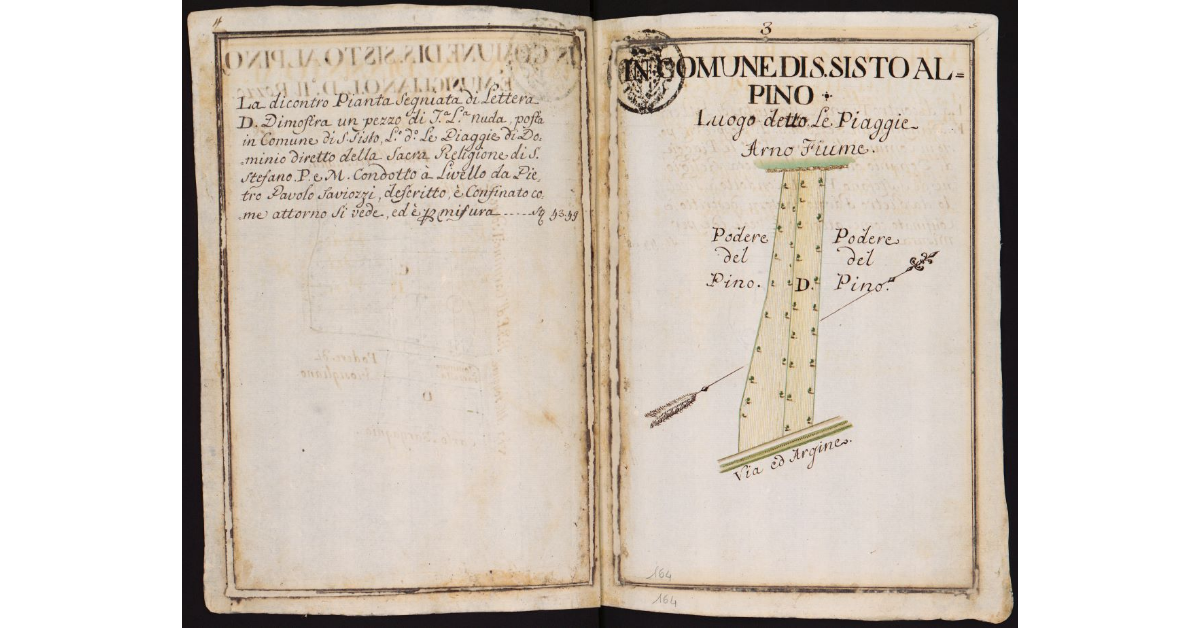 4
La dicontro Pianta Segniata di Lettera
D. Dimostra un pezzo di T.ª L.ª nuda, posta
in Comune di S. Sisto, L.º d.º Le Piaggie di Do,
minio diretto della Sacra Religione di S.
Stefano. P. e M. Condotto à Livello da Pie
tro Pavolo Saviozzi, descritto, è Confinato co,
me attorno si vede, ed è p misura
3
IN COMUNE DI S. SISTO AL=
PINO
Luogo detto Le Piaggie
Arno Fiume.
Podere
del
Pino.
D.
Podere
del
Pino.
Via ed Argine.
164
164